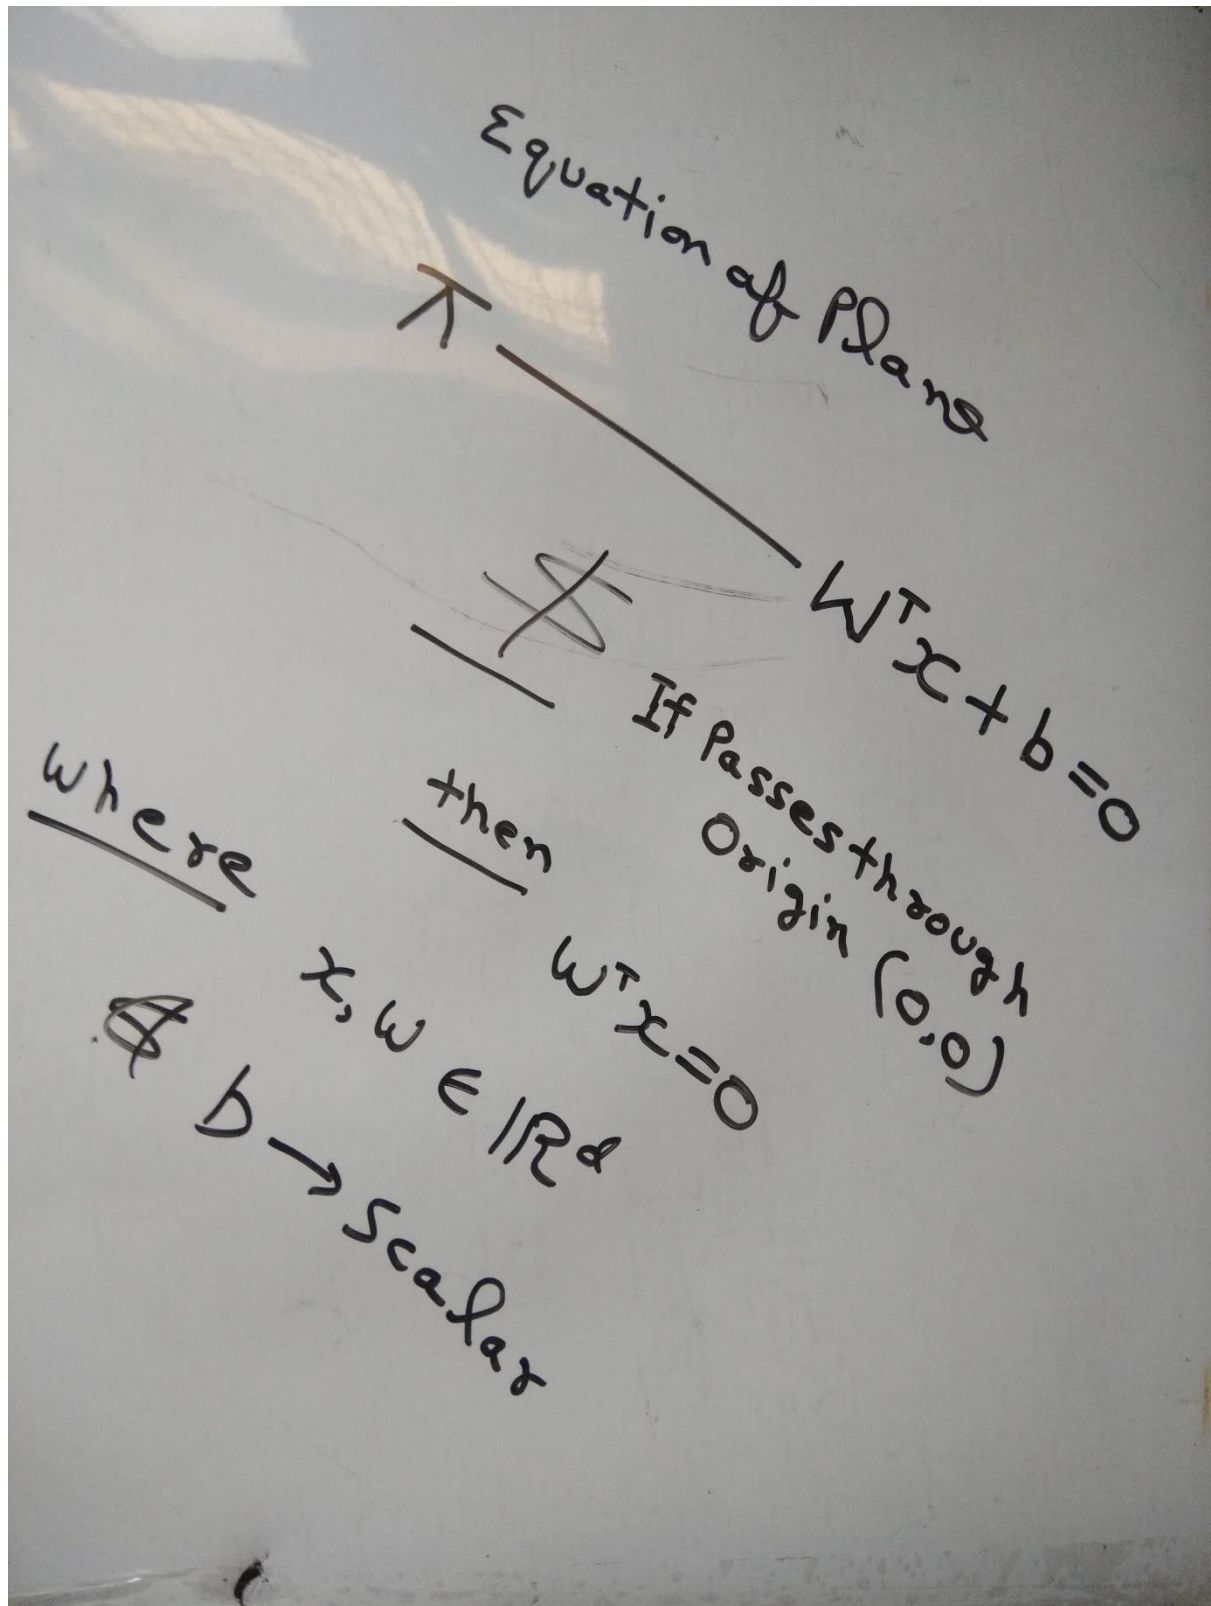 Equation of Plane
π — Wᵀx + b = 0
$ If Passes through
Origin (0,0)
then Wᵀx = 0
where x, w ∈ ℝᵈ
& b → Scalar